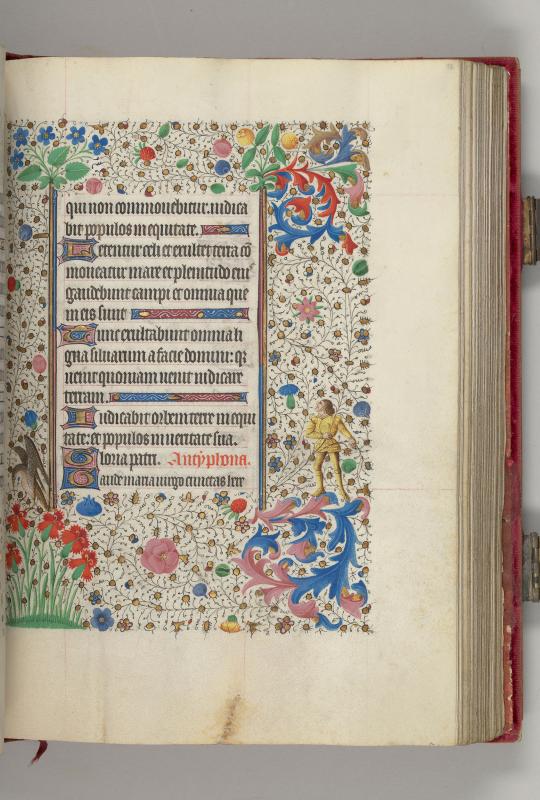 qui non commouebitur. iudica
bit populos in equitate.
Letentur celi et exultet terra cō
moueatur mare et plenitudo eiꝰ
gaudebunt campi et omnia que
in eis sunt
Tunc exultabunt omnia li
gna siluarum a facie domini: qꝛ
uenit quoniam uenit iudicare
terram.
Iudicabit orbem terre in equi
tate: et populos in ueritate sua.
Gloria patri. Antyphona.
Gaude maria uirgo cunctas here